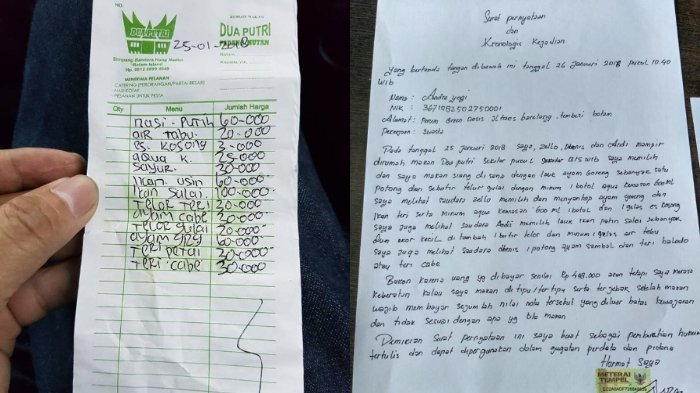 NO.
DUA PUTRI
DUA PUTRI
25-01-2018
Simpang Bandara Hang Nadim
Batam Island
MENERIMA PESANAN
CATERING (PERORANGAN/PARTAI BESAR)
NASI KOTAK
PESANAN UNTUK PESTA
Qty Menu Jumlah Harga
nasi. Putih 60-000
air Tabu. 20-000
es. Kosong 3-000
aqua k. 25-000
sayur. 30-000
Ikan asin 60-000
Ikan Salai 100-000
Telor Teri 20-000
ayam cabe 30-000
Telor gulai 20-000
60-000
Teri petai 30-000
Teri cabe 30-000
Surat pernyataan
dan
Kronologis Kejadian
Yang bertanda tangan dibawah ini tanggal 26 Januari 2018 pukul 10.40
WIB
Nama : Andre yogi
NIK : 3671982502750001
Alamat : Perum Green Oasis Jl trans barelang. tembesi batam
Pekerjaan : Swasta
Pada tanggal 25 Januari 2018 saya, Zello, Dhenis dan Ardi mampir
dirumah makan Dua putri sekitar pukul 1315 WIB saya memilih
dan saya makan siang di sana dengan lauk ayam Goreng sebanyak satu
potong dan sebutir telur gulai dengan minum 1 botol aqua kemasan 600 ml
Saya melihat saudara zello memilih dan menyantap ayam goreng dan
Ikan teri serta minum aqua kemasan 600 ml 1 botol dan 1 gelas es kosong
Saya juga melihat saudara Ardi memilih lauk ikan patin salai sebanyak
ekor kecil di tambah 1 butir telor dan minum 1 gelas air tebu
Saya juga melihat saudara dhenis 1 potong ayam sambal dan teri balado
atau teri cabe
Bukan karena uang yg dibayar senilai Rp 488.000 akan tetapi saya merasa
keberatan kalau saya makan di tipu / tertipu serta terjebak setelah makan
wajib membayar sejumlah nilai nota tersebut yang diluar batas kewajaran
dan tidak sesuai dengan apa yg kita makan
Demikian Surat pernyataan ini saya buat sebagai pemberitahuan
tertulis dan dapat dipergunakan dalam gugatan perdata dan pidana
Hormat Saya
METERAI
TEMPEL